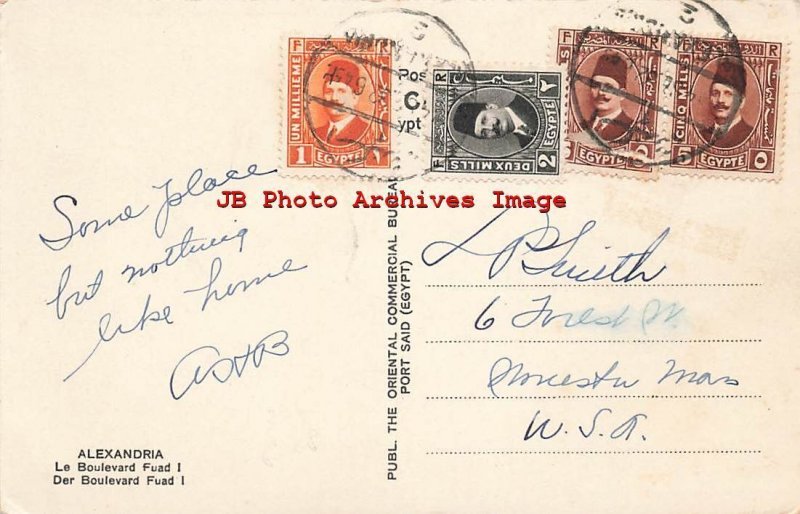 F R
UN MILLIEME
1 EGYPTE
Pos
F R
DEUX MILLS
2 EGYPTE ٢
ypt
F R
EGYPTE
F R
CINQ MILLS
5 EGYPTE ٥
Some place
but nothing
like home
JB Photo Archives Image
PUBL. THE ORIENTAL COMMERCIAL BUREAU
PORT SAID (EGYPT)
L P Smith
6 Forest St.
Worcester Mass
U.S.A.
ALEXANDRIA
Le Boulevard Fuad I
Der Boulevard Fuad I